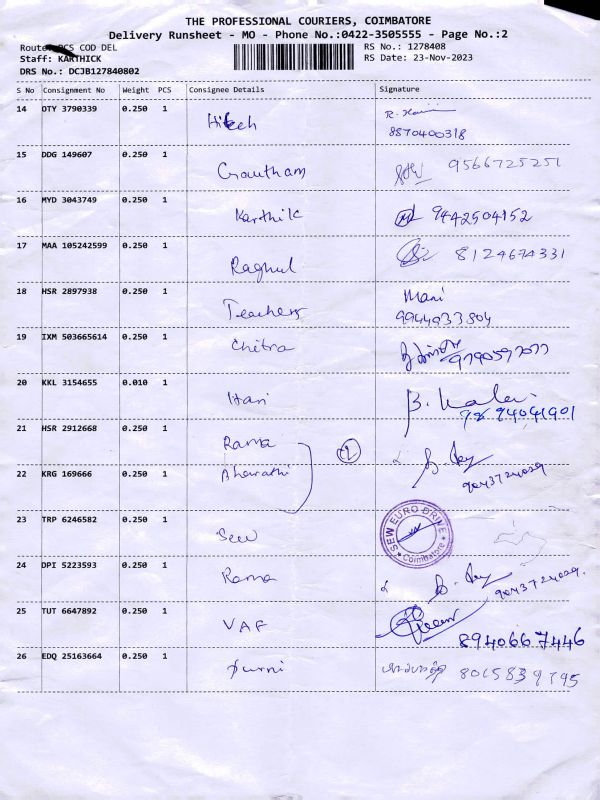 THE PROFESSIONAL COURIERS, COIMBATORE
Delivery Runsheet - MO - Phone No.:0422-3505555 - Page No.:2
Route: PCS COD DEL RS No.: 1278408
Staff: KARTHICK RS Date: 23-Nov-2023
DRS No.: DCJB127840802
S No Consignment No Weight PCS Consignee Details Signature
14 OTY 3790339 0.250 1 Hitesh
8870400318
15 DDG 149607 0.250 1 Goutham 9566725251
16 MYD 3043749 0.250 1 Karthik 9442504152
17 MAA 105242599 0.250 1 Raghul 8124674331
18 HSR 2897938 0.250 1 Teachers Mani
9944033804
19 IXM 503665614 0.250 1 Chitra
9790597077
20 KKL 3154655 0.010 1 Hari B. Kala
21 HSR 2912668 0.250 1 Rama
22 KRG 169666 0.250 1 Bharathi
9043724029
23 TRP 6246582 0.250 1 Sew SEW EURO DRIVE Coimbatore
24 DPI 5223593 0.250 1 Rama
9043724029.
25 TUT 6647892 0.250 1 VAF
8940667446
26 EDQ 25163664 0.250 1